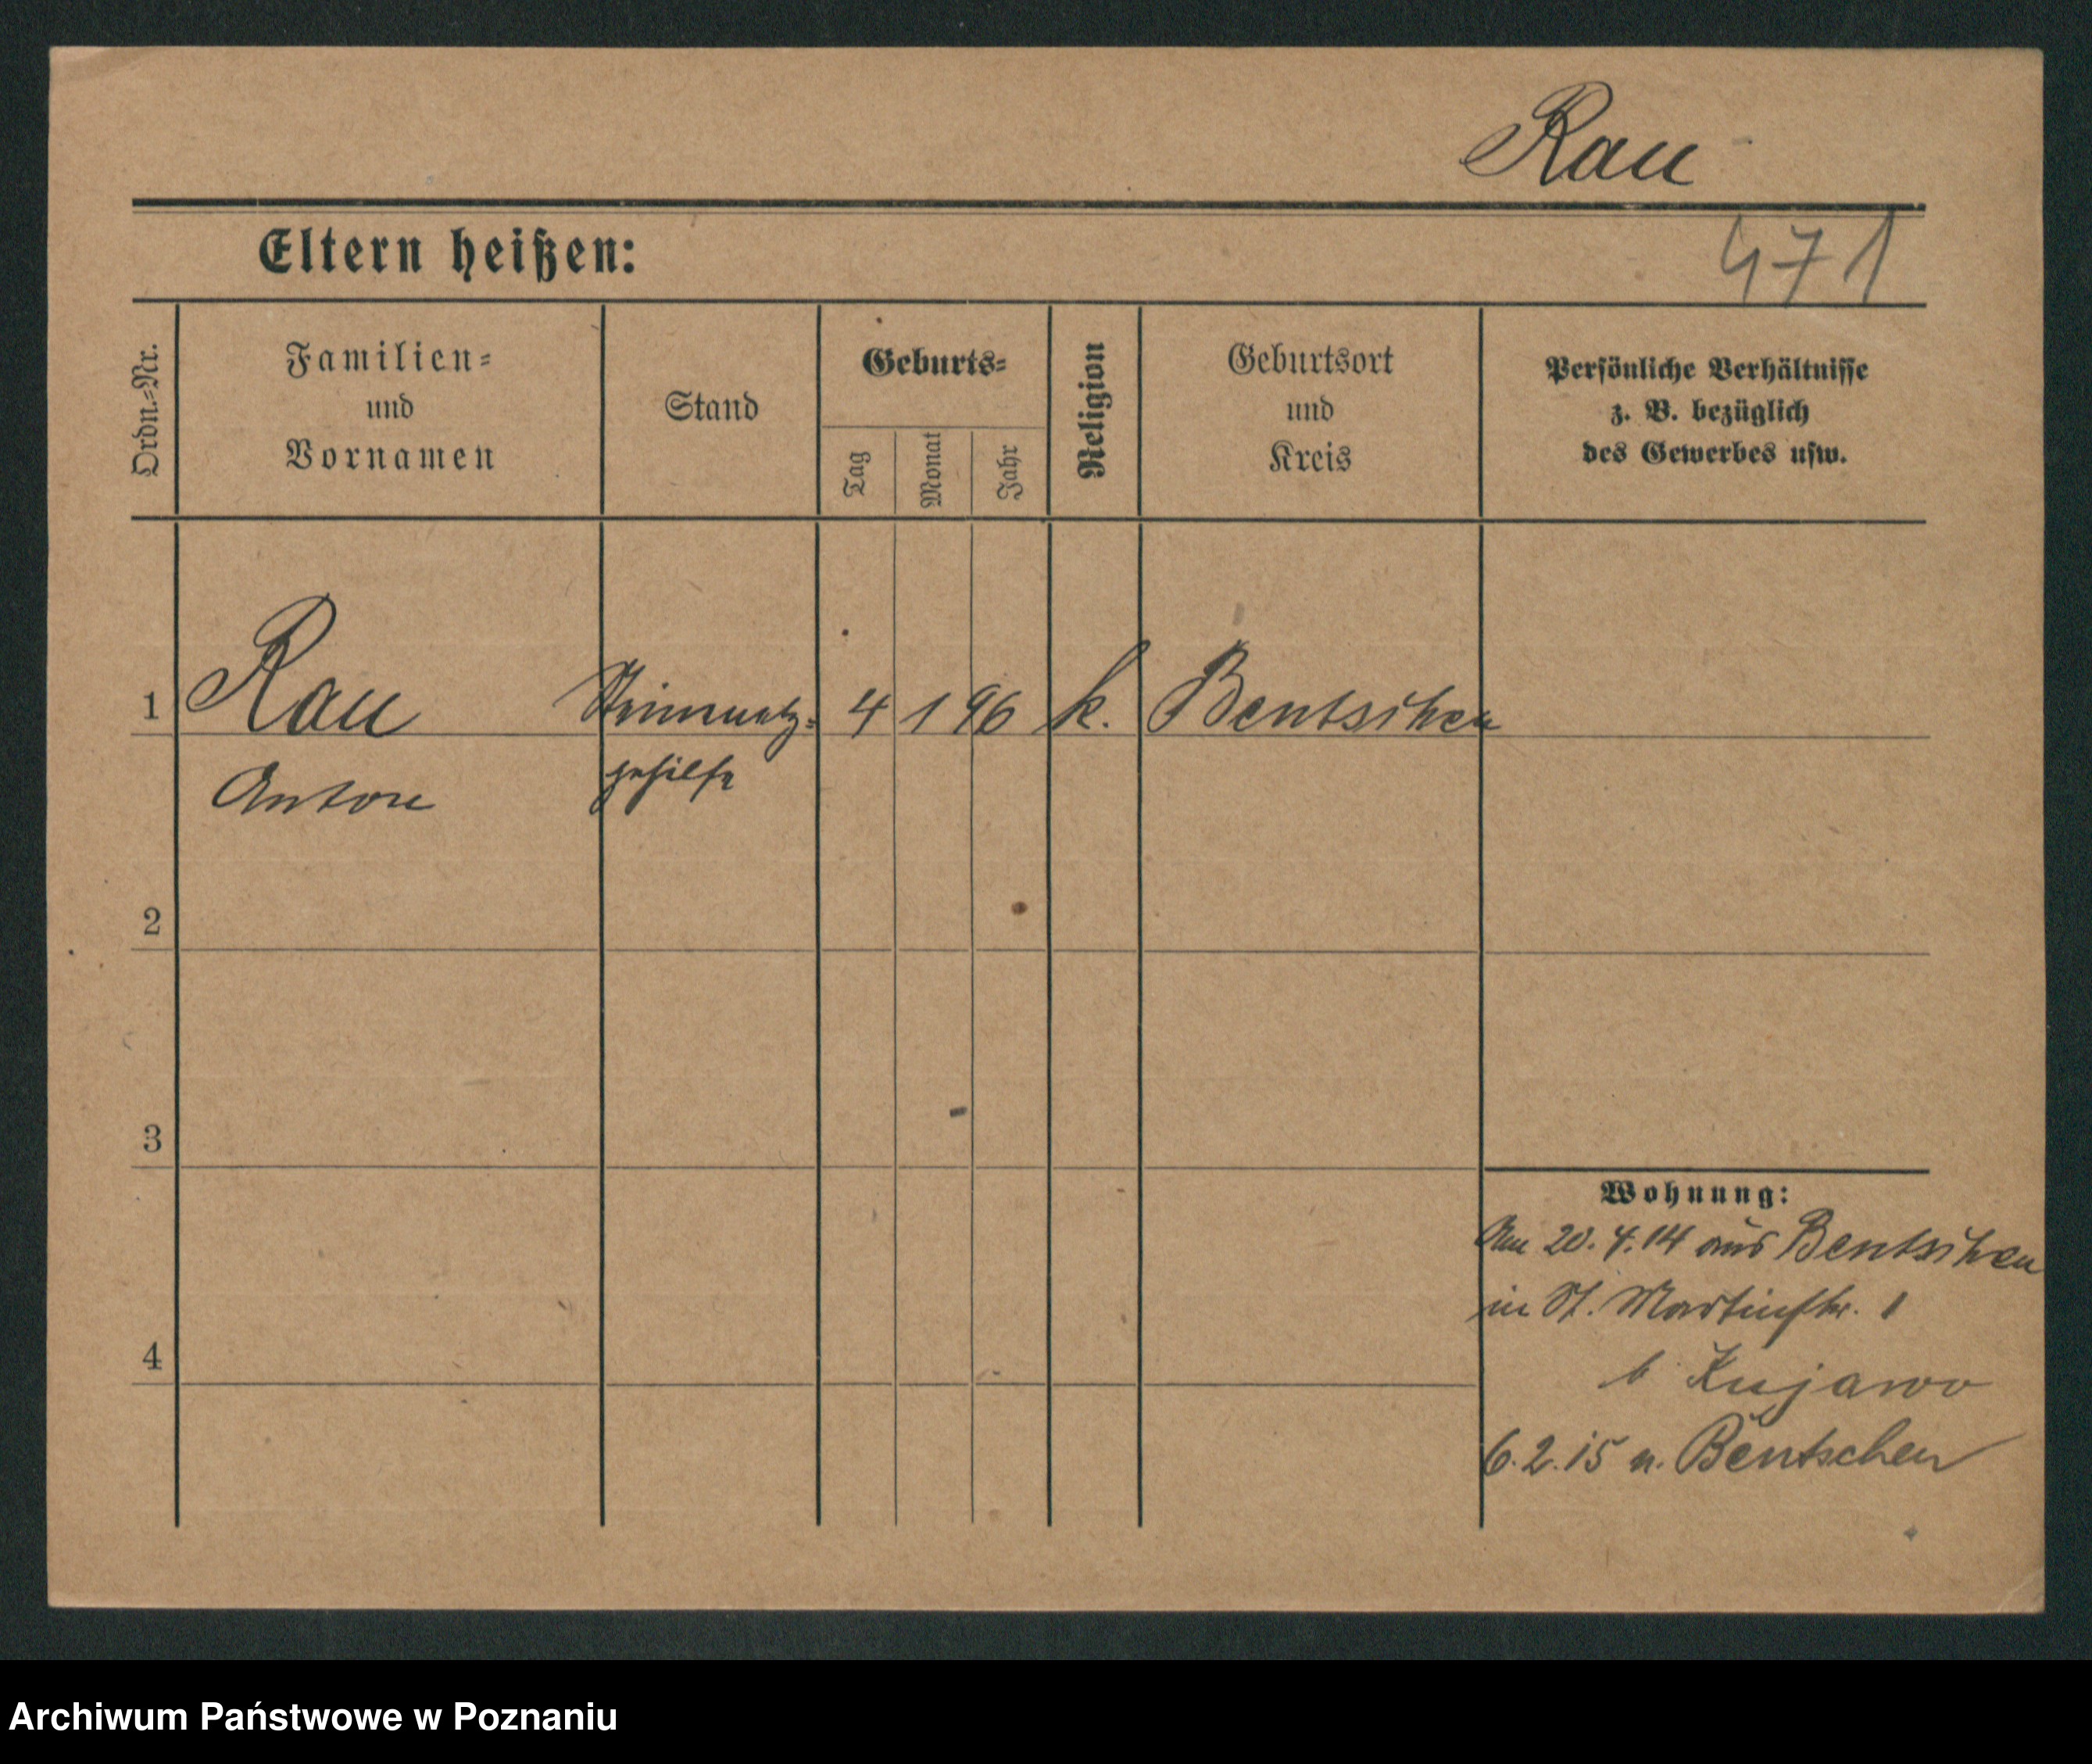 Rau
Eltern heißen:
471
Ordn.-Nr.
Familien-
und
Vornamen
Stand
Geburts-
Tag
Monat
Jahr
Religion
Geburtsort
und
Kreis
Persönliche Verhältnisse
z. B. bezüglich
des Gewerbes usw.
1 Rau 4 1 96 k. Bentschen
Anton gehilfe
2
3
Wohnung:
Am 20. 4. 14 aus Bentschen
in St. Martinstr. 1
4
b Kujawo
6. 2. 15 n. Bentschen
Archiwum Państwowe w Poznaniu